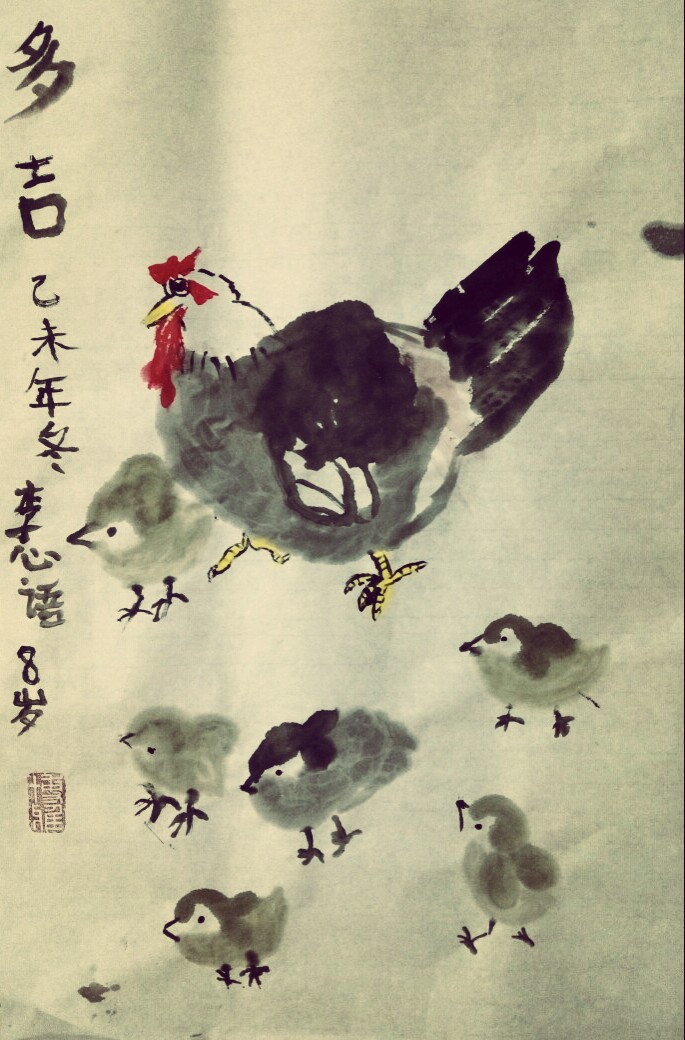 多吉
乙未年冬、李心语 8岁